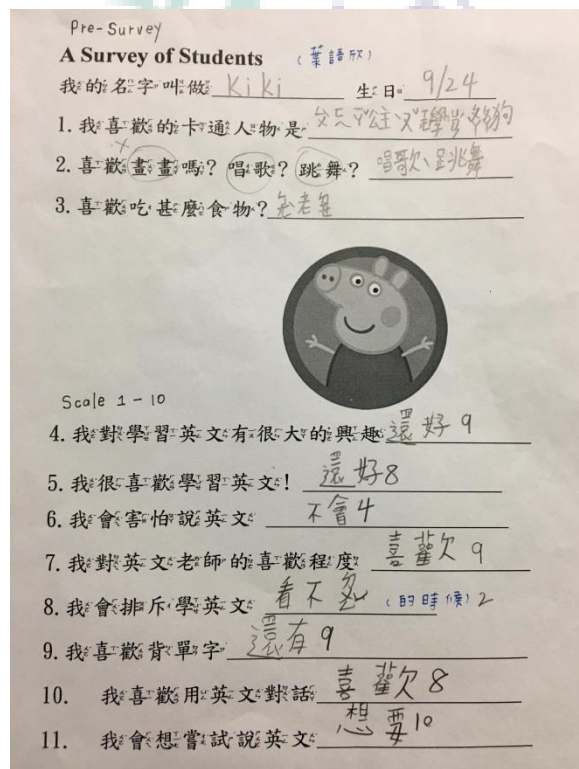 Pre-Survey
A Survey of Students (葉語欣)
我的名字叫做 Kiki 生日 9/24
1. 我喜歡的卡通人物是 公主
2. 喜歡畫畫嗎? 唱歌? 跳舞? 唱歌、跳舞
3. 喜歡吃甚麼食物?
Scale 1-10
4. 我對學習英文有很大的興趣 還好 9
5. 我很喜歡學習英文! 還好8
6. 我會害怕說英文 不會4
7. 我對英文老師的喜歡程度 喜歡 9
8. 我會排斥學英文 看不 (的時候) 2
9. 我喜歡背單字 還有9
10. 我喜歡用英文對話 喜歡8
11. 我會想嘗試說英文 想要10